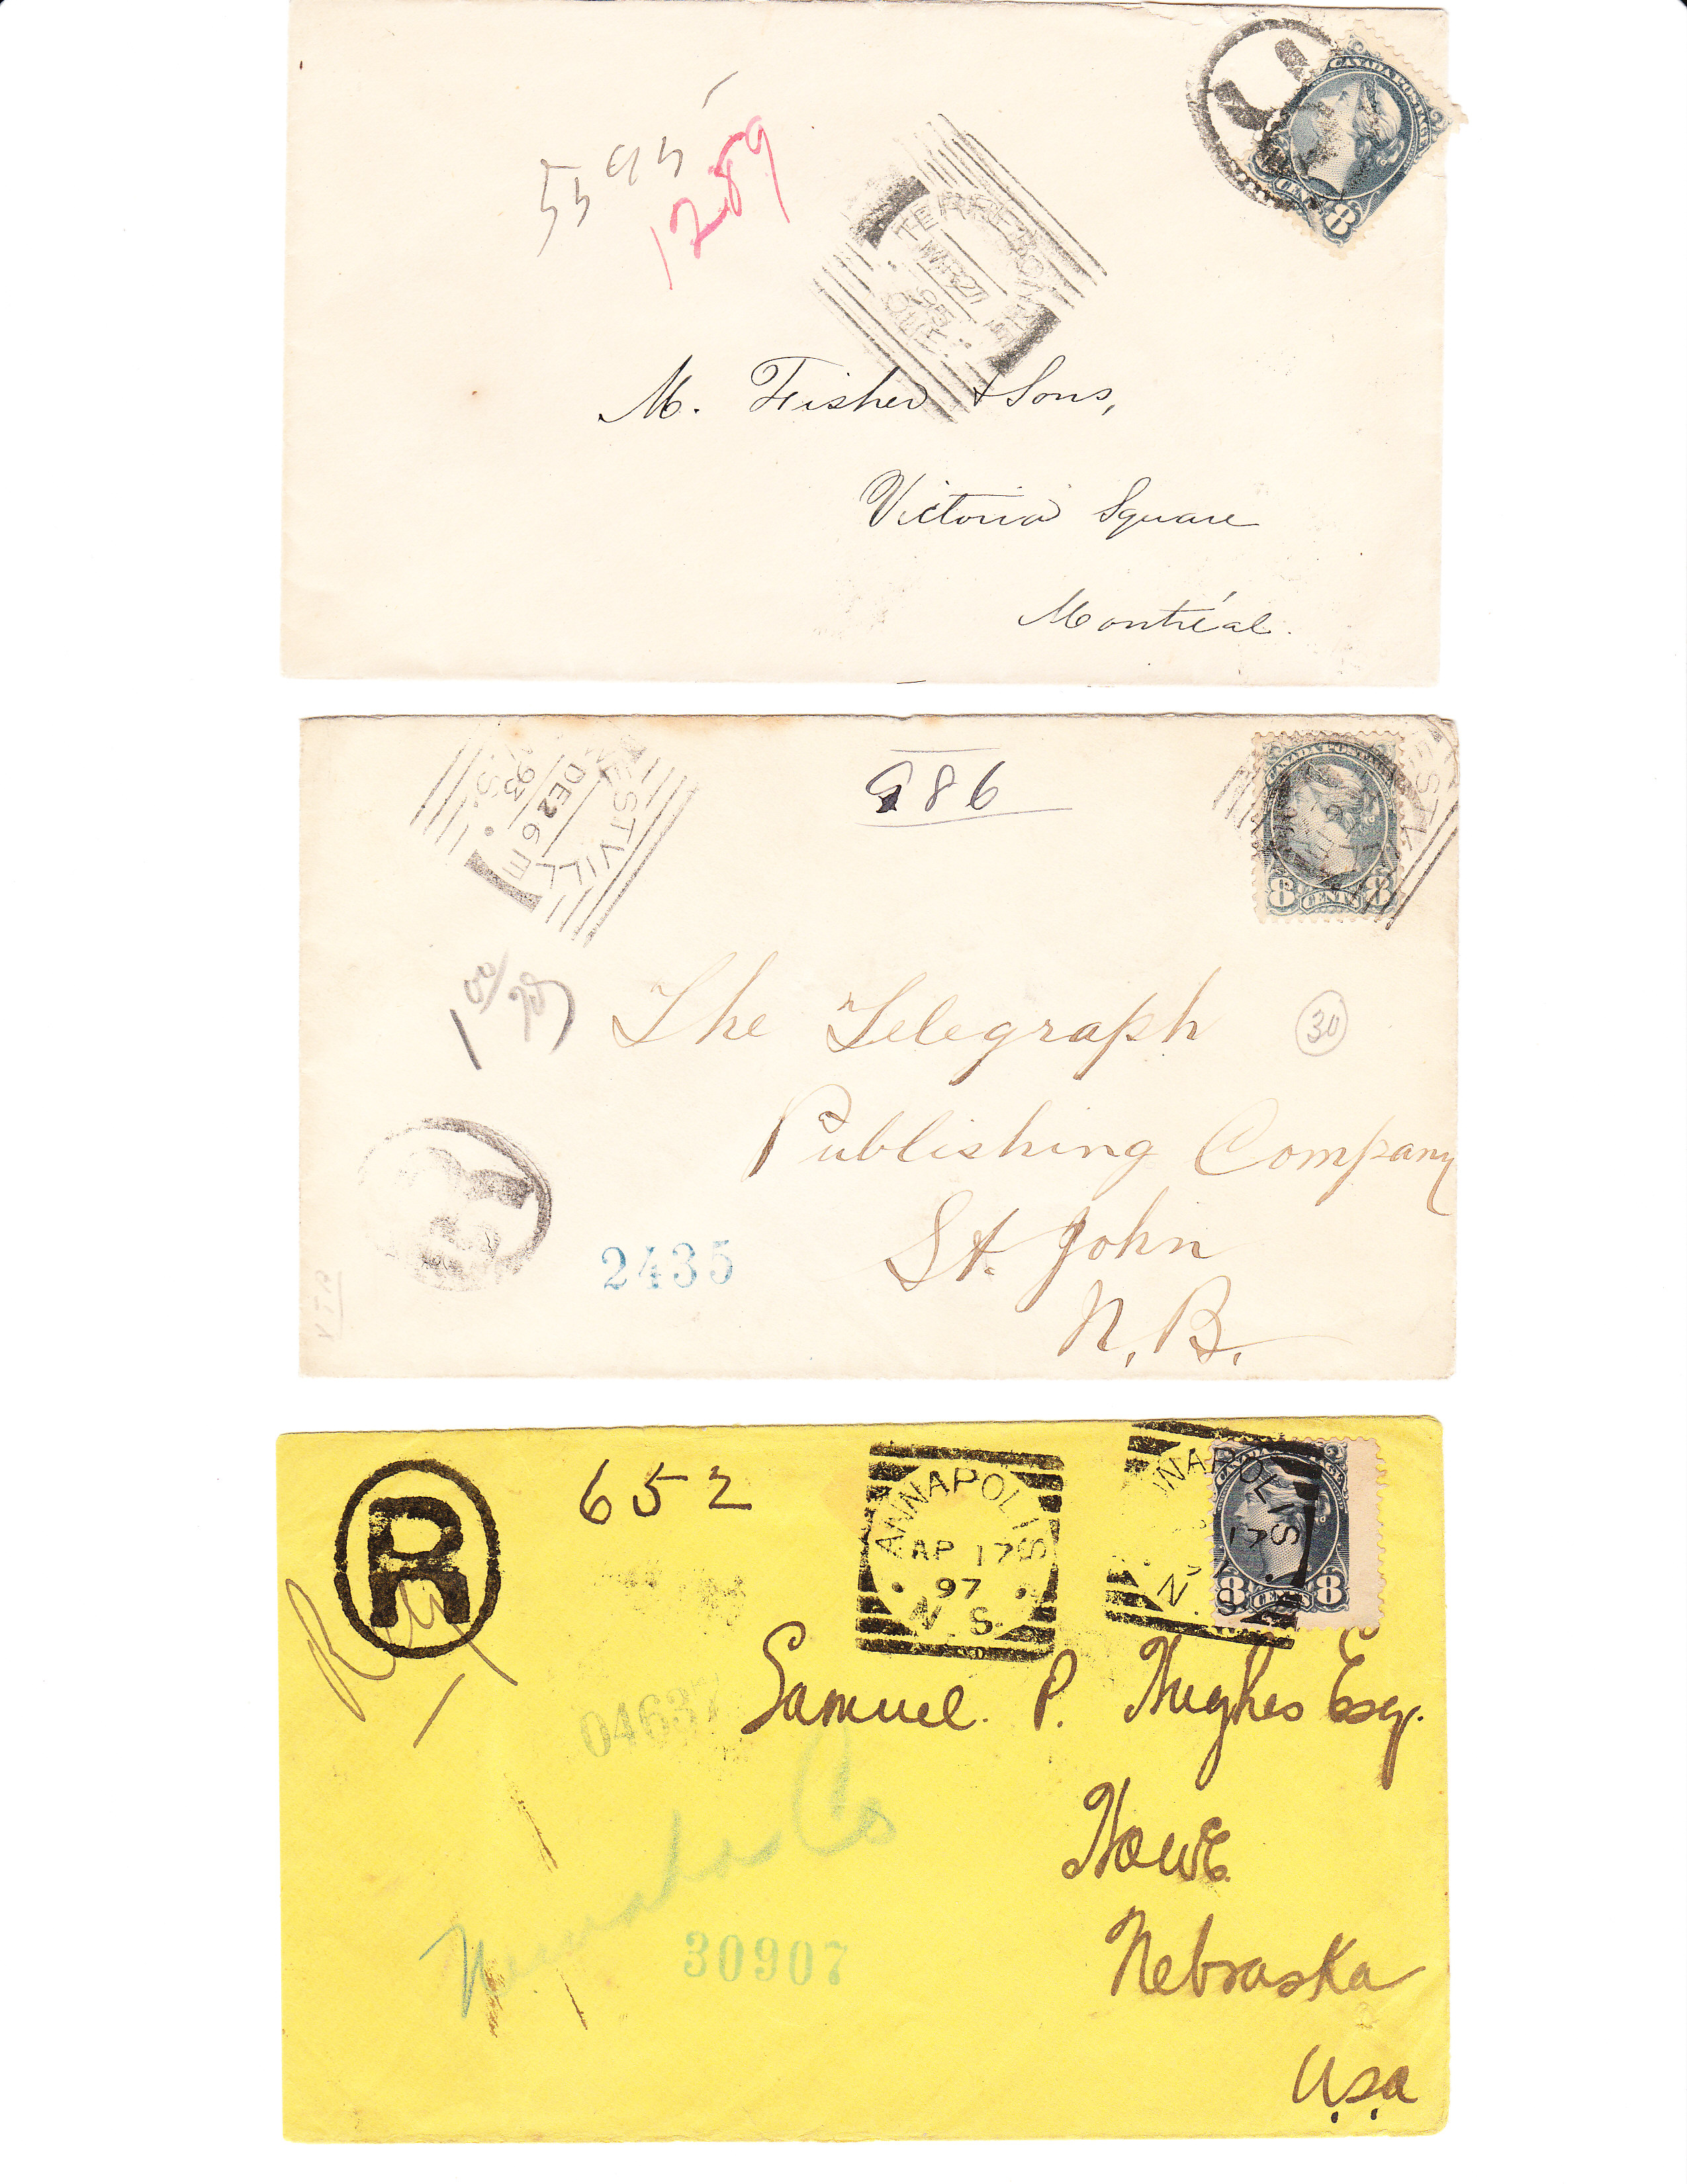 CANADA POSTAGE
8
CENTS
5595
1289
TERREBONNE
MR 27
95
QUE.
M. Fisher & Sons,
Victoria Square
Montréal.
WESTVILLE
DE 26
93
N.S.
986
CANADA POSTAGE
8 CENTS 8
The Telegraph
30
Publishing Company
St. John
N.B.
2435
R
652
ANNAPOLIS
AP 17
97
N.S.
NNAPOLIS
17
N.
8 CENTS 8
Reg
Samuel. P. Hughes Esq.
04637
Howe
Nemaha Co
30907
Nebraska
U.S.A